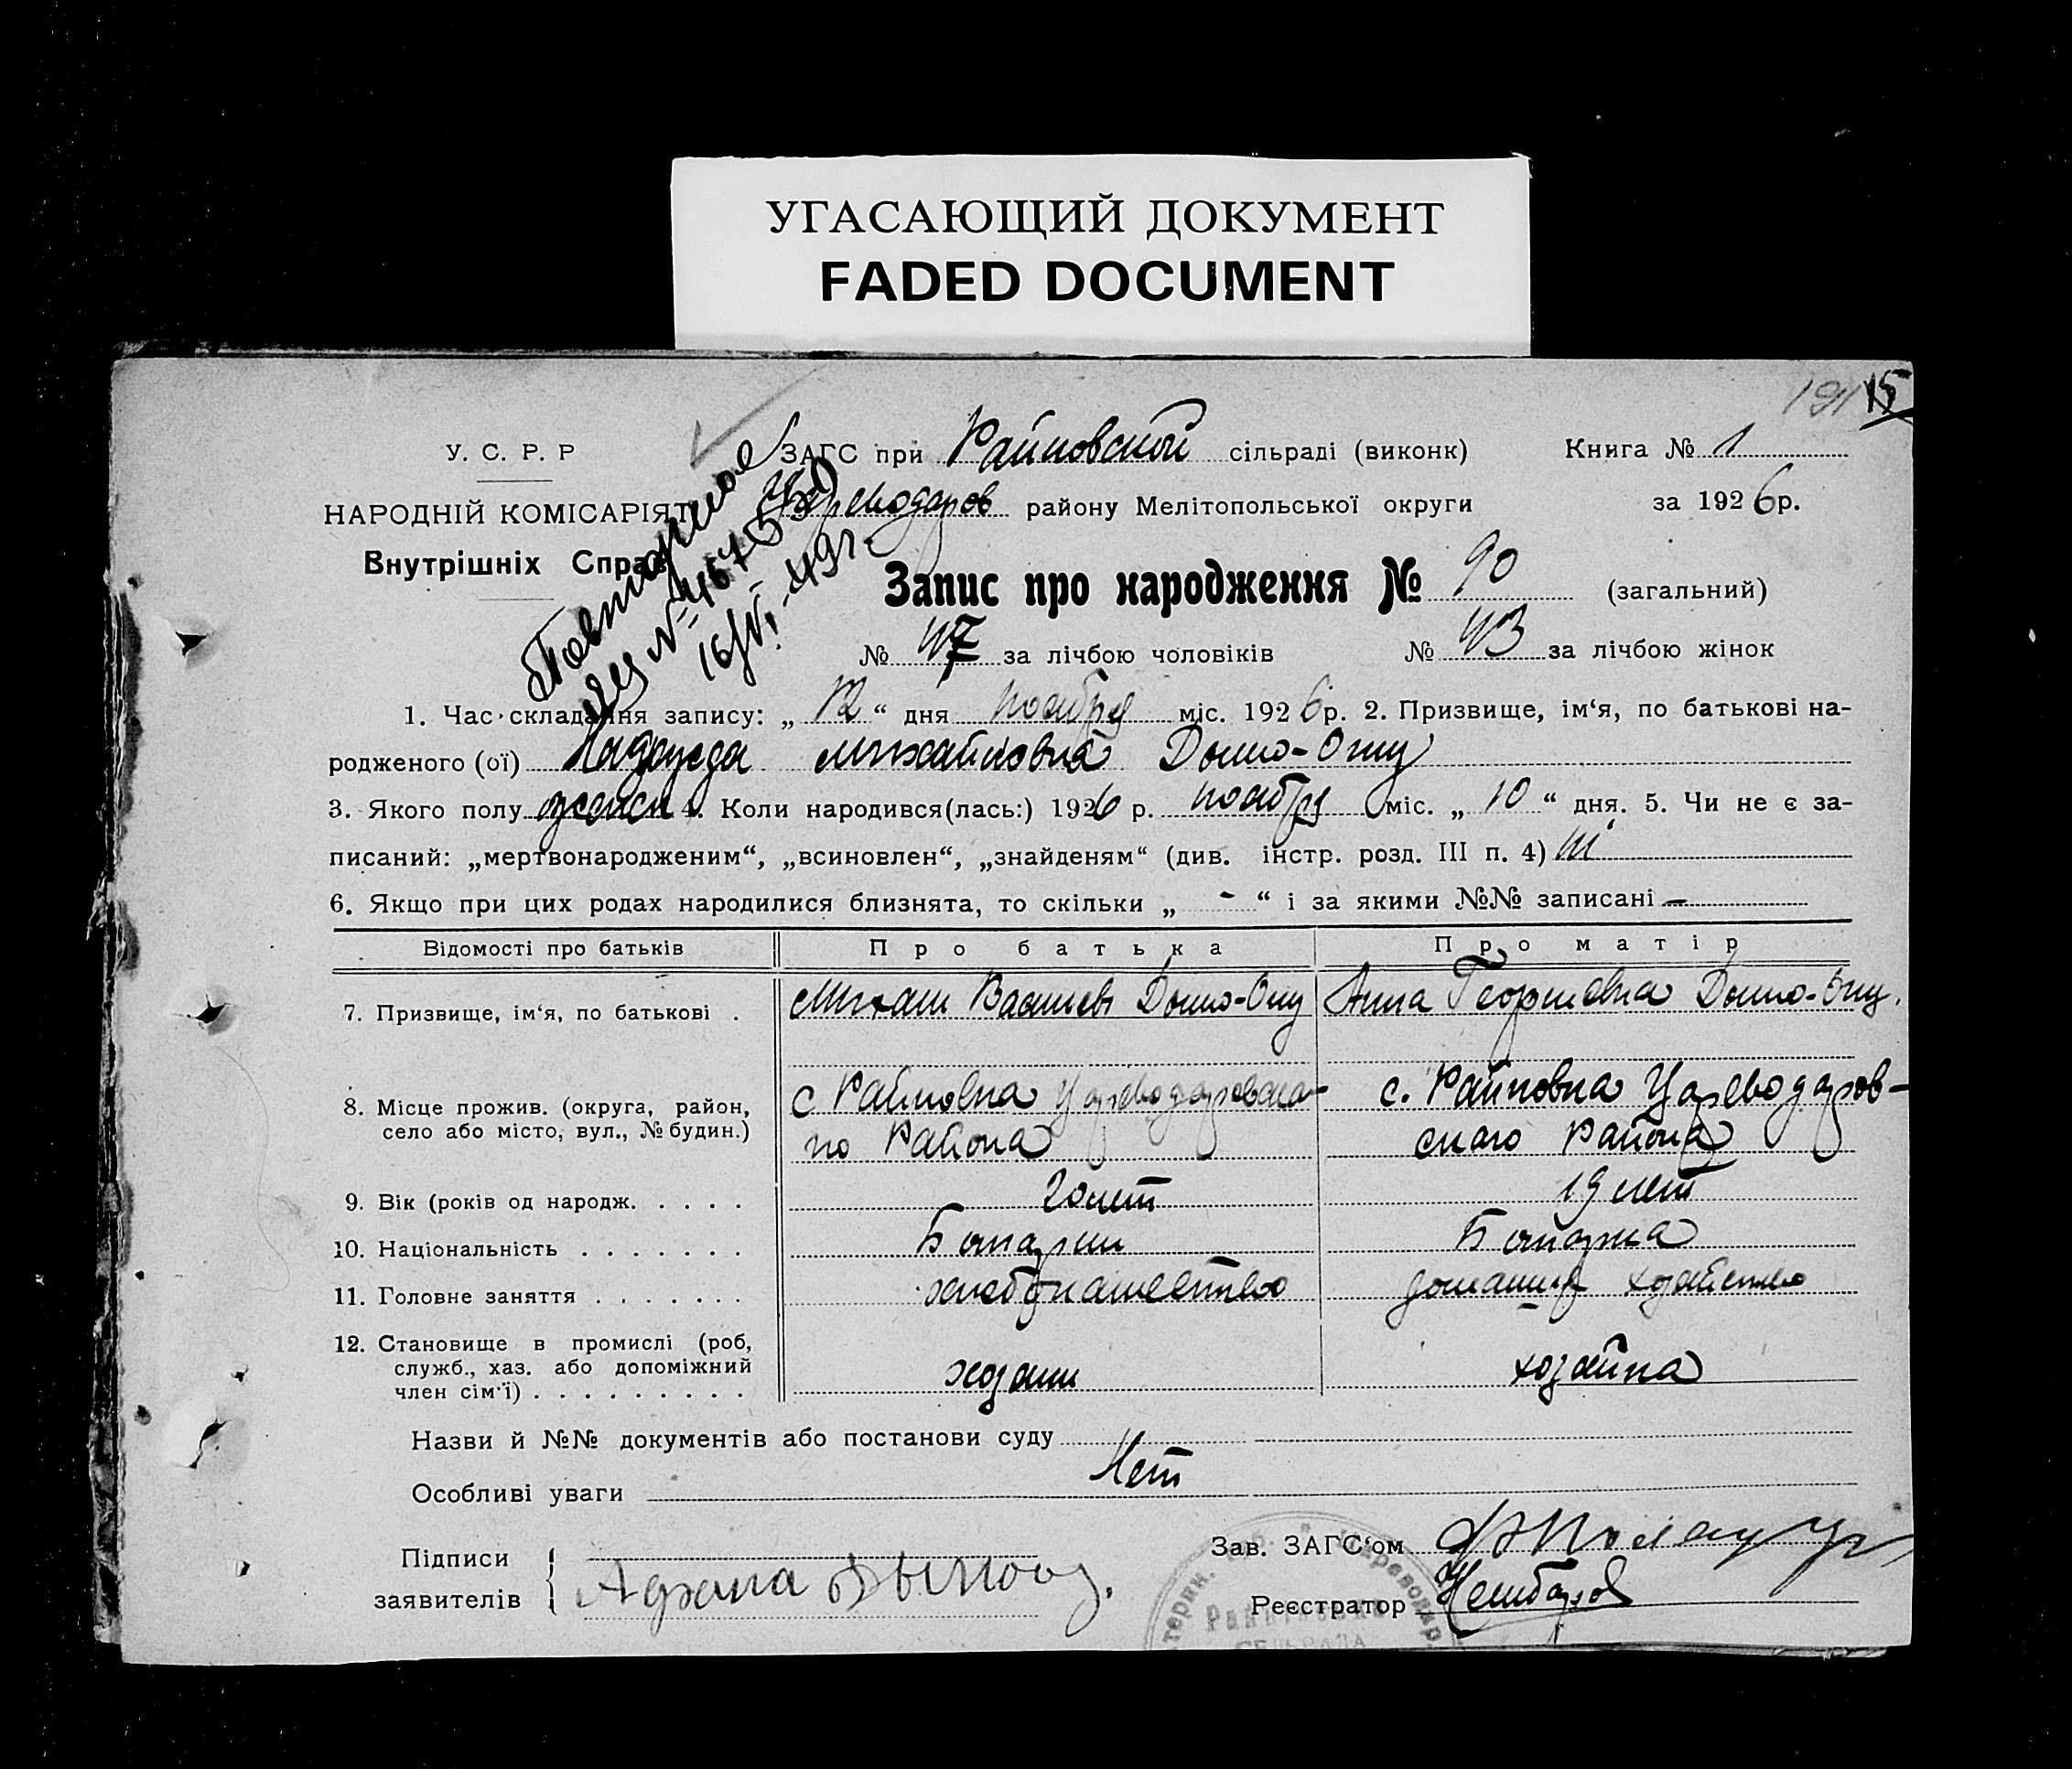 УГАСАЮЩИЙ ДОКУМЕНТ
FADED DOCUMENT
191 15
У. С. Р. Р
НАРОДНІЙ КОМІСАРІЯТ
Внутрішніх Справ
Повторное
16/VI-49г.
ЗАГС при Райновской сільраді (виконк)
Книга № 1
Цареводаров району Мелітопольської округи
за 1926 р.
Запис про народження № 90 (загальний)
№ 47 за лічбою чоловіків
№ 43 за лічбою жінок
1. Час складання запису: „12“ дня ноября міс. 1926 р. 2. Призвище, ім‘я, по батькові на-
родженого (ої) Надежда Михайловна
3. Якого полу женск 4. Коли народився(лась:) 1926 р. ноября міс. „10“ дня. 5. Чи не є за-
писаний: „мертвонародженим“, „всиновлен“, „знайденям“ (див. інстр. розд. III п. 4)
6. Якщо при цих родах народилися близнята, то скільки „ - “ і за якими №№ записані —
Відомості про батьків
Про батька
Про матір
7. Призвище, ім‘я, по батькові .
Михаил Васильев
Анна Георгиевна
8. Місце прожив. (округа, район,
село або місто, вул., № будин.)
с Райновка Цареводаровска-
го Района
с. Райновка Цареводаров-
скаго Района
9. Вік (років од народж. . . . .
20 лет
19 лет
10. Національність . . . . . . .
Болгарин
Болгарка
11. Головне заняття . . . . . . .
хлебопашество
домашнее хозяйство
12. Становище в промислі (роб,
служб., хаз. або допоміжний
член сім‘ї) . . . . . . . . .
хозяин
хозяйка
Назви й №№ документів або постанови суду
Нет
Особливі уваги
Підписи
заявителів
Зав. ЗАГС‘ом
Реєстратор
СЕЛЬРАДА